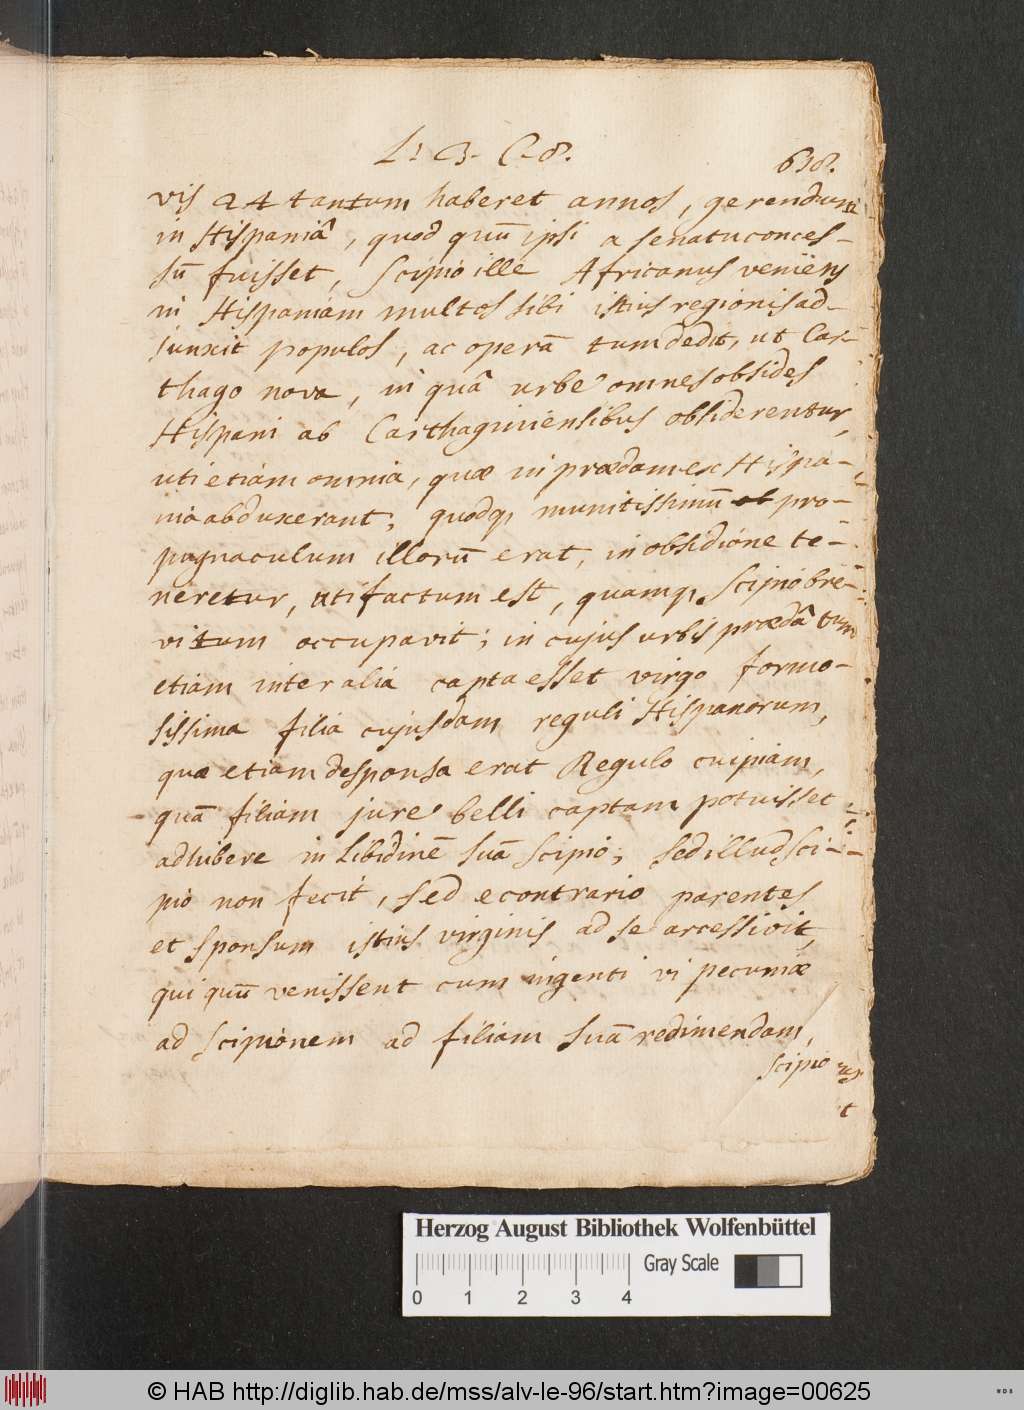 L: 3. C. 8.
618.
vis 24 tantum haberet annos, gerendum
in Hispaniâ, quod quū ipsi a senatu conces-
sū fuisset, Scipio ille Africanus veniens
in Hispaniam multos sibi istius regionis ad-
junxit populos, ac operā tum dedit, ut Car-
thago nova, in quâ urbe omnes obsides
Hispani ab Carthaginiensibus obsiderentur,
uti etiam omnia, quæ in prædam ex Hispa-
nia abduxerant; quodq, munitissimū pro-
pugnaculum illorū erat, in obsidione te-
neretur, uti factum est, quamq, Scipio bre-
vi tum occupavit; in cujus urbis prædâ tum
etiam inter alia capta esset virgo formo-
sissima filia cujusdam reguli Hispanorum,
quæ etiam desponsa erat Regulo cuipiam,
quā filiam jure belli captam potuisset
adhibere in libidinē suā Scipio; sed illud Sci-
pio non fecit, sed e contrario parentes
et sponsum istius virginis ad se arcessivit,
qui quū venissent cum ingenti vi pecuniæ
ad Scipionem ad filiam suā redimendam,
Scipio
Herzog August Bibliothek Wolfenbüttel
Gray Scale
0 1 2 3 4
© HAB http://diglib.hab.de/mss/alv-le-96/start.htm?image=00625